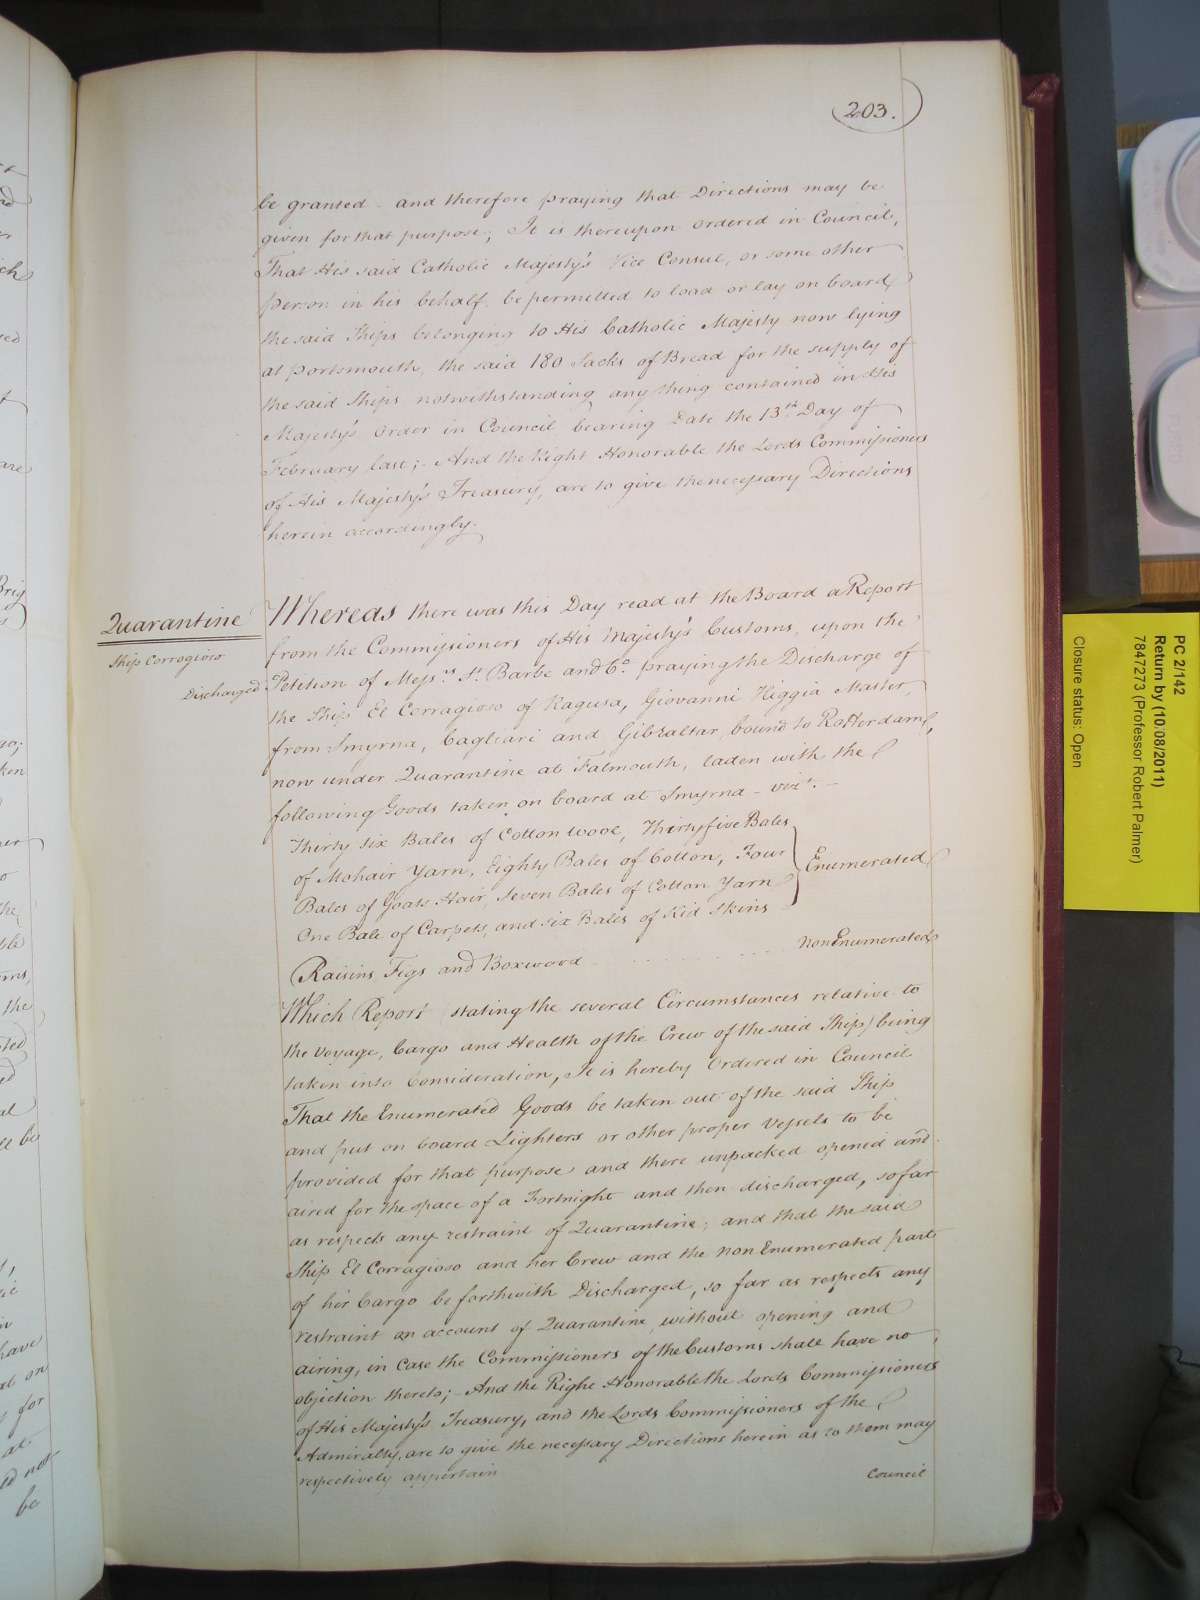 203.
be granted - and therefore praying that Directions may be
given for that purpose; It is thereupon ordered in Council,
That His said Catholic Majesty's Vice Consul, or some other
person in his behalf be permitted to load or lay on board
the said Ships belonging to His Catholic Majesty now lying
at portsmouth, the said 180 Sacks of Bread for the supply of
the said Ships notwithstanding any thing contained in His
Majesty's Order in Council bearing Date the 13th. Day of
February last; - And the Right Honorable the Lords Commissioners
of His Majesty's Treasury, are to give the necessary Directions
herein accordingly.
Quarantine
Ship Corragioso
Discharged
Whereas there was this Day read at the Board a Report
from the Commissioners of His Majesty's Customs, upon the
Petition of Messrs. St. Barbe and Co. praying the Discharge of
the Ship El Corragioso of Ragusa, Giovanni Higgia Master,
from Smyrna, Cagliari and Gibraltar, bound to Rotterdam,
now under Quarantine at Falmouth, laden with the
following Goods taken on board at Smyrna - vizt. -
Thirty six Bales of Cotton wool, Thirty five Bales
of Mohair Yarn, Eighty Bales of Cotton, Four
Bales of Goats Hair, Seven Bales of Cotton Yarn
One Bale of Carpets, and six Bales of Kid Skins
Enumerated
Raisins, Figs and Boxwood . . . . . . . . . . non Enumerated
Which Report (stating the several Circumstances relative to
the Voyage, Cargo and Health of the Crew of the said Ship) being
taken into Consideration, It is hereby Ordered in Council
That the Enumerated Goods be taken out of the said Ship
and put on board Lighters or other proper Vessels to be
provided for that purpose and there unpacked opened and
aired for the space of a Fortnight and then discharged, so far
as respects any restraint of Quarantine; and that the said
Ship El Corragioso and her Crew and the non Enumerated part
of her Cargo be forthwith Discharged, so far as respects any
restraint on account of Quarantine, without opening and
airing, in case the Commissioners of the Customs shall have no
objection thereto; - And the Right Honorable the Lords Commissioners
of His Majesty's Treasury, and the Lords Commissioners of the
Admiralty, are to give the necessary Directions herein as to them may
respectively appertain
Council
PC 2/142
Return by (10/08/2011)
7847273 (Professor Robert Palmer)
Closure status: Open